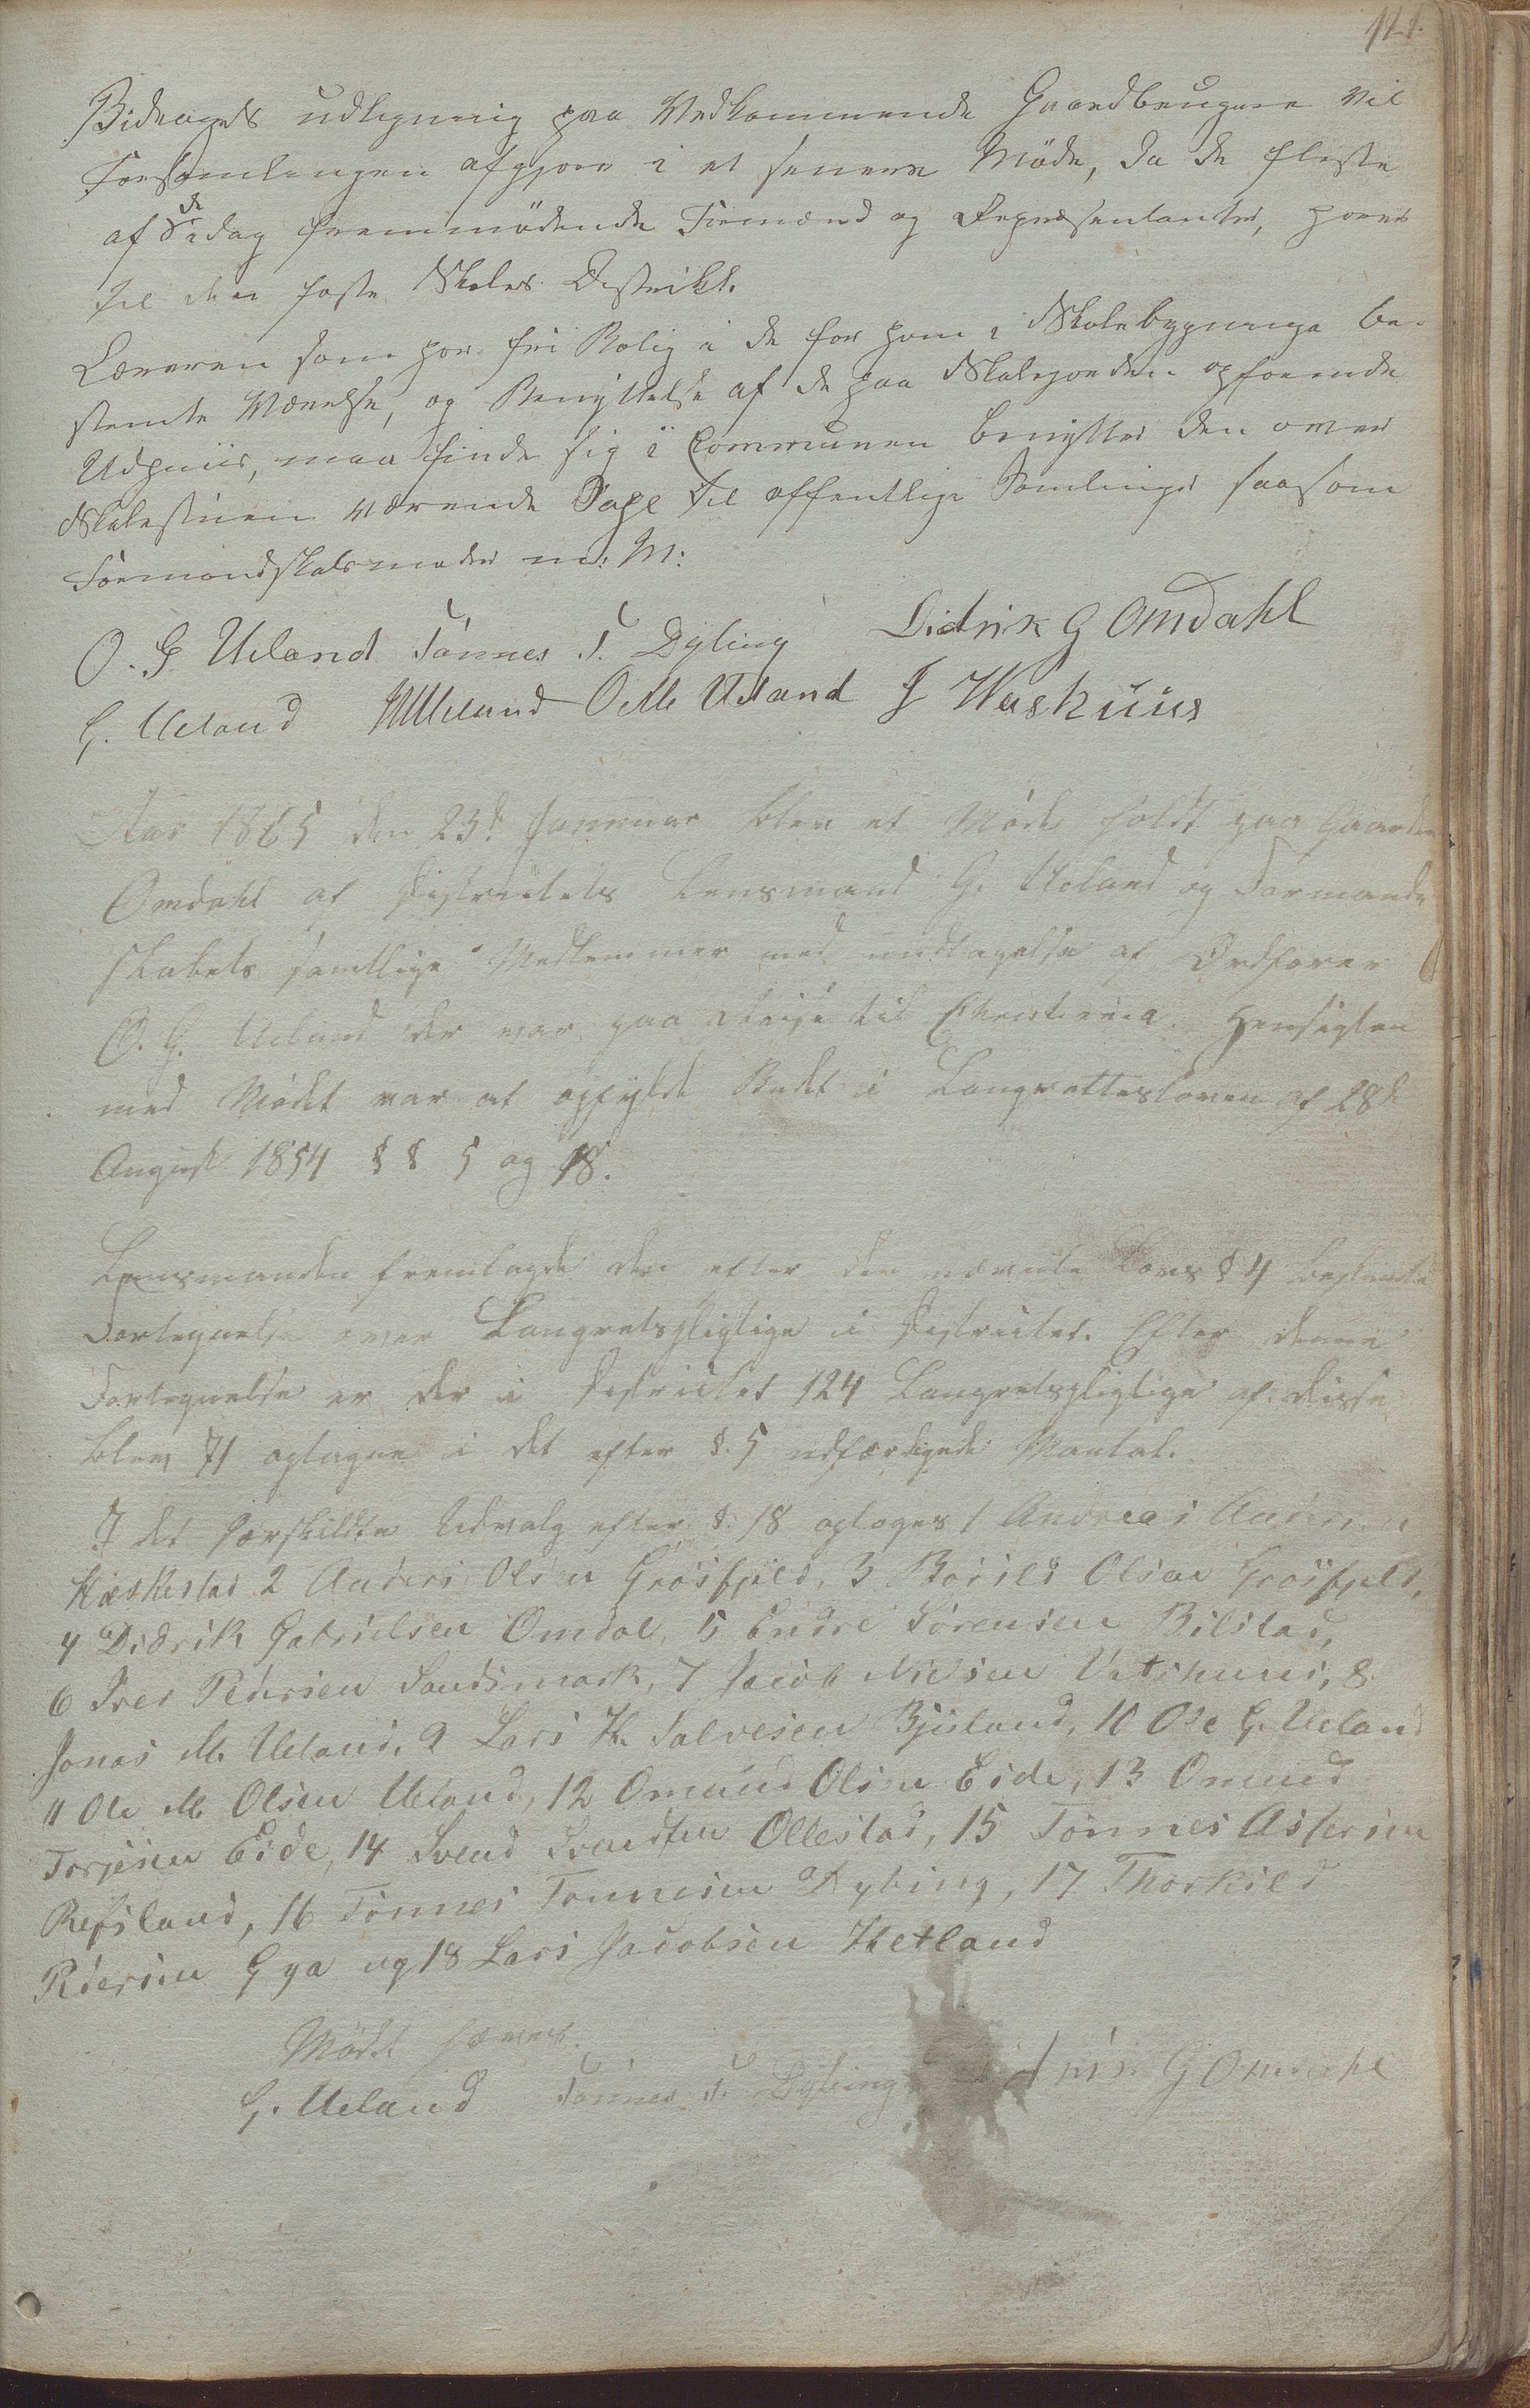 Bidragets udligning paa Vedkommende Gaardbrugere vil
Forsamlingen afgjøre i et senere Møde, da de fleste
af de idag fremmødende Formænd og Repræsentanter, hører
til den faste Skoles Distrikt.
Læreren som har fri Bolig i de for ham i Skolebygninga be-
stemte Værelse, og Benyttelse af de paa Skolejorden opførende
Udhuus, maa finde sig i Communen benytter den over
Skolestuen værende Sahl til offentlige Samlinger saasom
Formandskabsmøder m: M:
O. G. Ueland Tönnes T. Dybing Didrik G Omdahl
G. Ueland Ueland Ole M Ueland J Washuus
Aar 1865 den 23d Januar blev et Møde holdt paa Gaarden
Omdahl af Districtets Lensmand G. Ueland og Formand-
skabets samtlige Medlemmer med undtagelse af Ordfører
O. G. Ueland der var paa Reise til Christiania. Hensigten
med Mödet var at opfylde Budet i Laugrettesloven af 28de
August 1854 § § 5 og 18.
Lensmanden fremlagde den efter den nævnte Lovs § 4
Fortegnelse over Laugretspligtige i Districtet. Efter denne
Fortegnelse er der i Districtet 124 Laugretspligtige af disse
blev 71 optagne i det efter §. 5 udfærdigede Mantal.
I det særskildte Udvalg efter §. 18 optoges 1 Andreas Andersen
Hæskestad 2 Anders Olsen Grösfjeld, 3 Olsen Grösfjeld,
4 Didrik Gabrielsen Omdal, 5 Endre Sörensen Bilstad,
6 Iver Pedersen Sandsmark, 7 Jacob Vatshuus, 8
Jonas M. Ueland, 9 Lars H. Salvesen Bjuland, 10 Ole G. Ueland
11 Ole M Olsen Ueland, 12 Omund Olsen Eide, 13 Omund
Torjesen Eide, 14 Svend Svendsen Ollestad, 15 Tönnes Assersen
Refsland, 16 Tönnes Tönnesen Dybing, 17 Thorkild
Gya og 18 Lars Jacobsen Hetland
Mödet hævet.
G. Ueland Tönnes T. Dybing G Omdahl